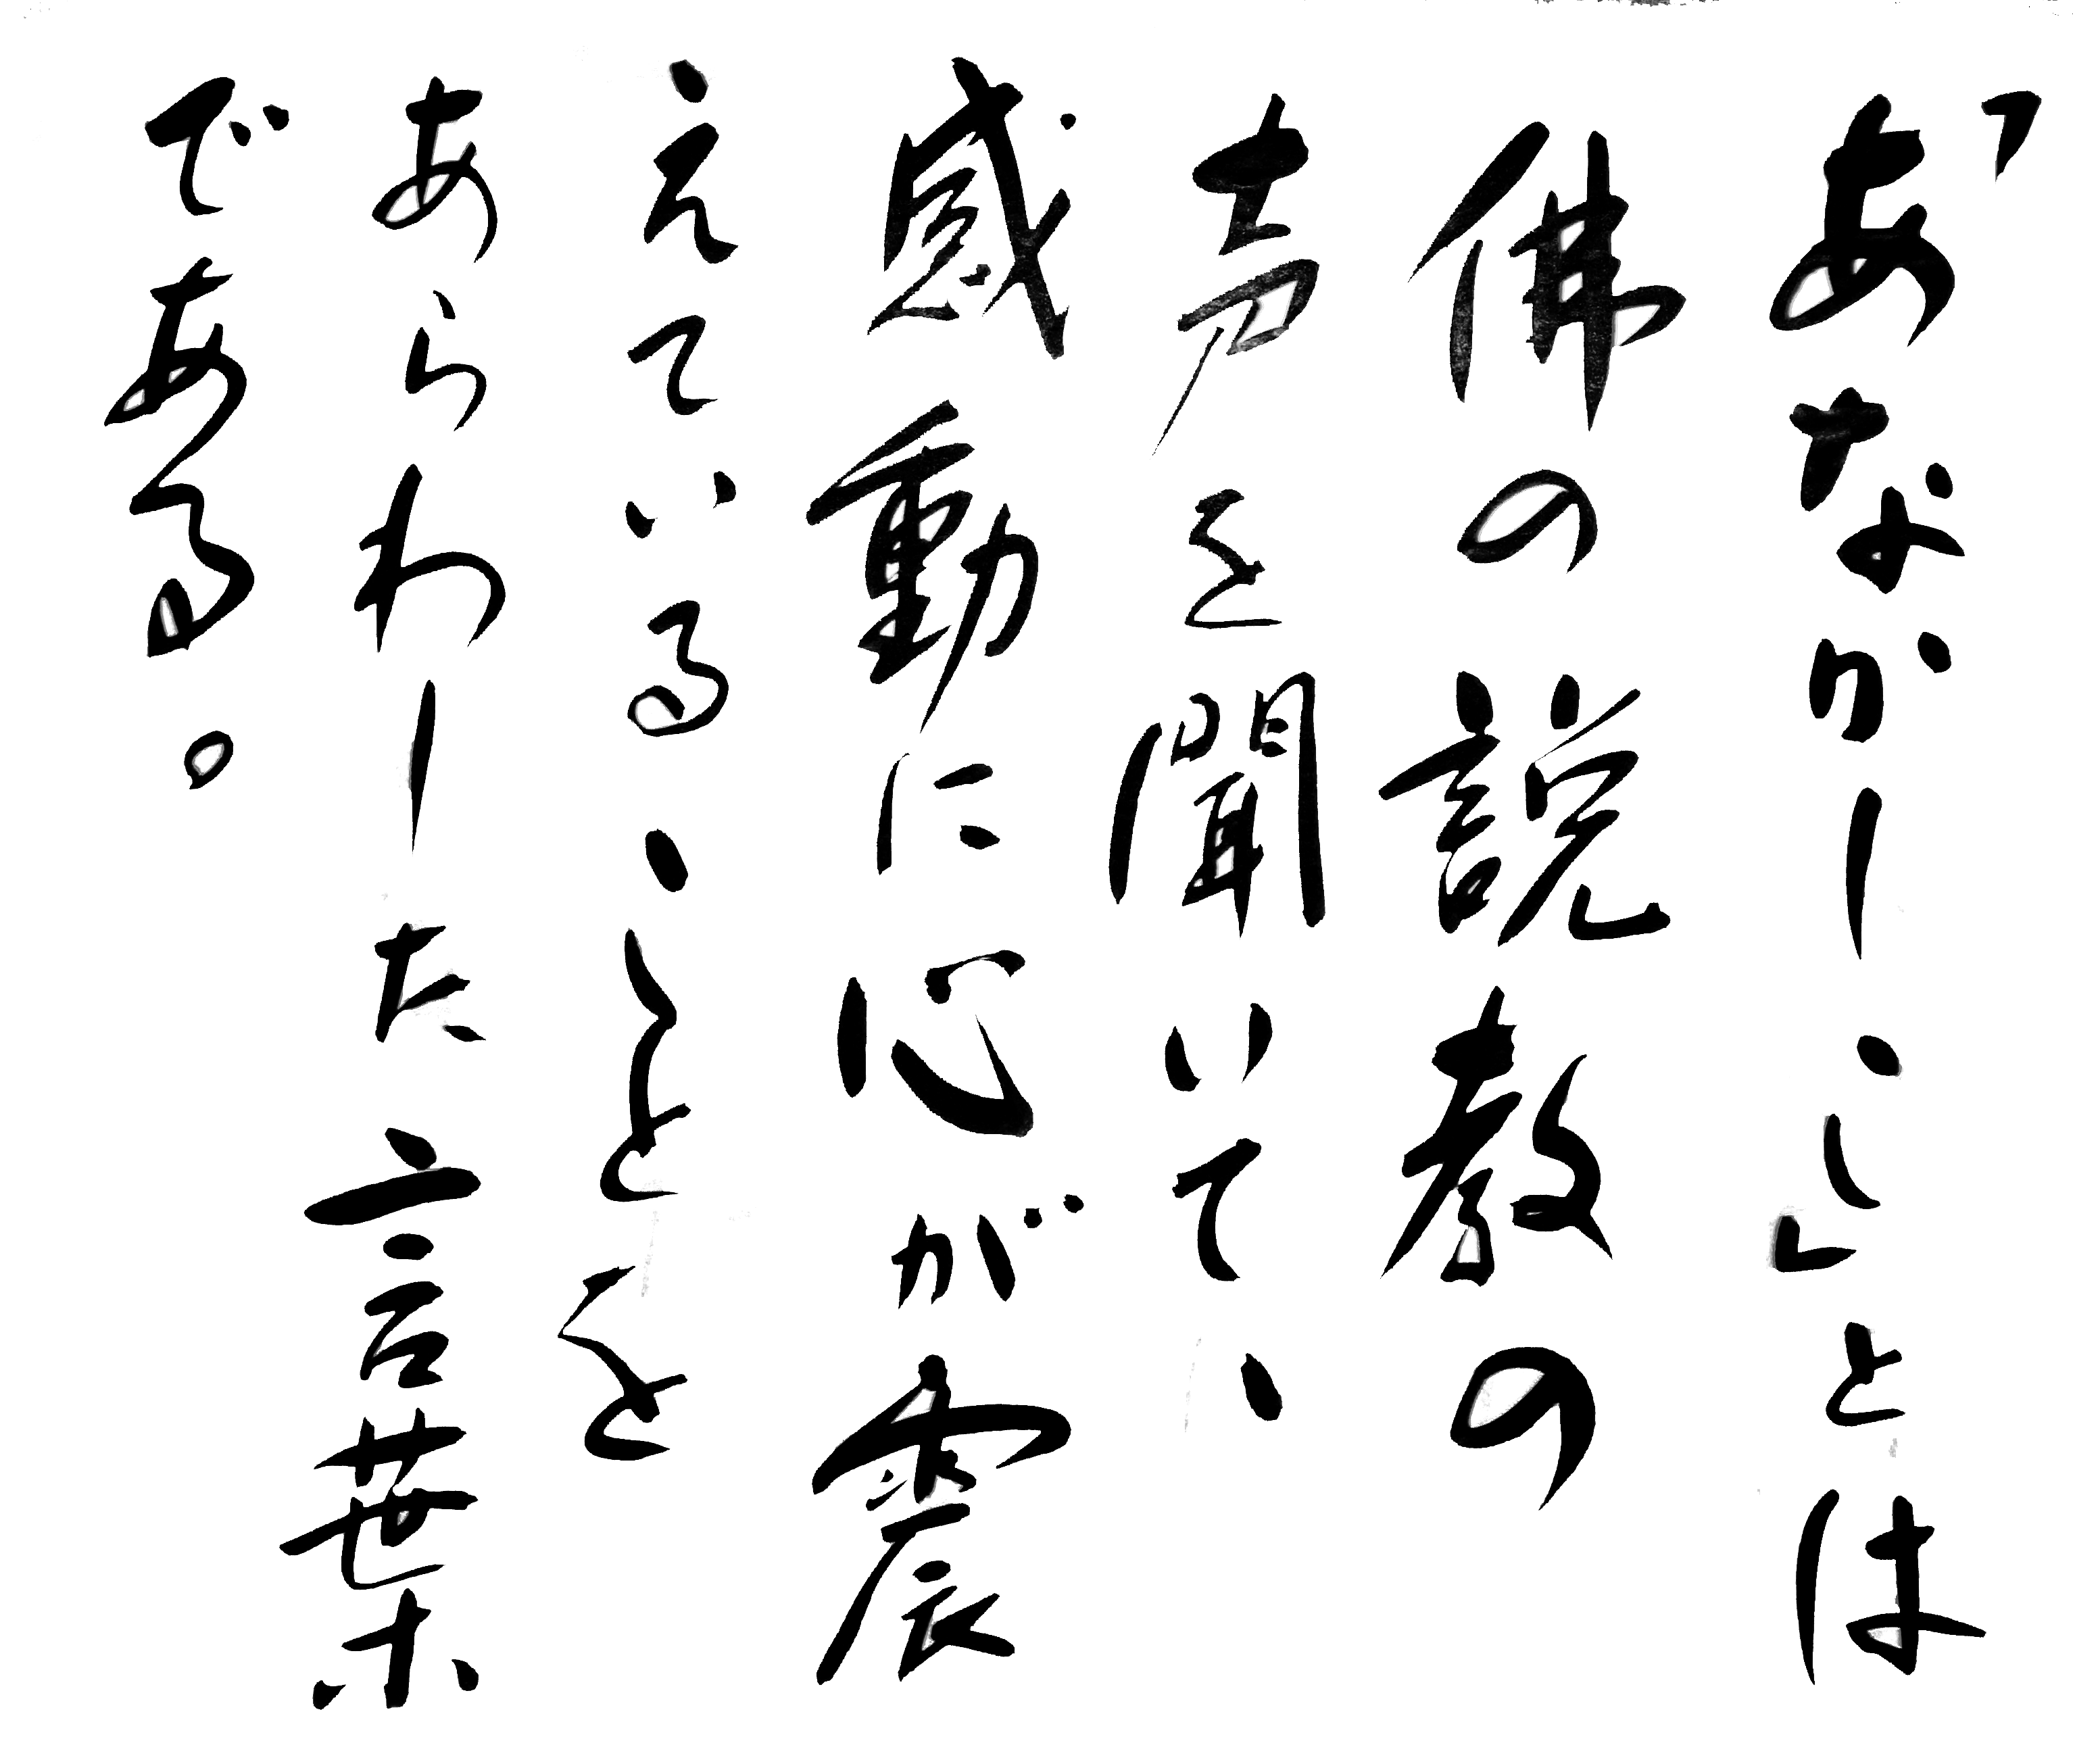 「あなかしこ」とは
佛の説教の
声を聞いて、
感動に心が震
えていることを
あらわした言葉
である。